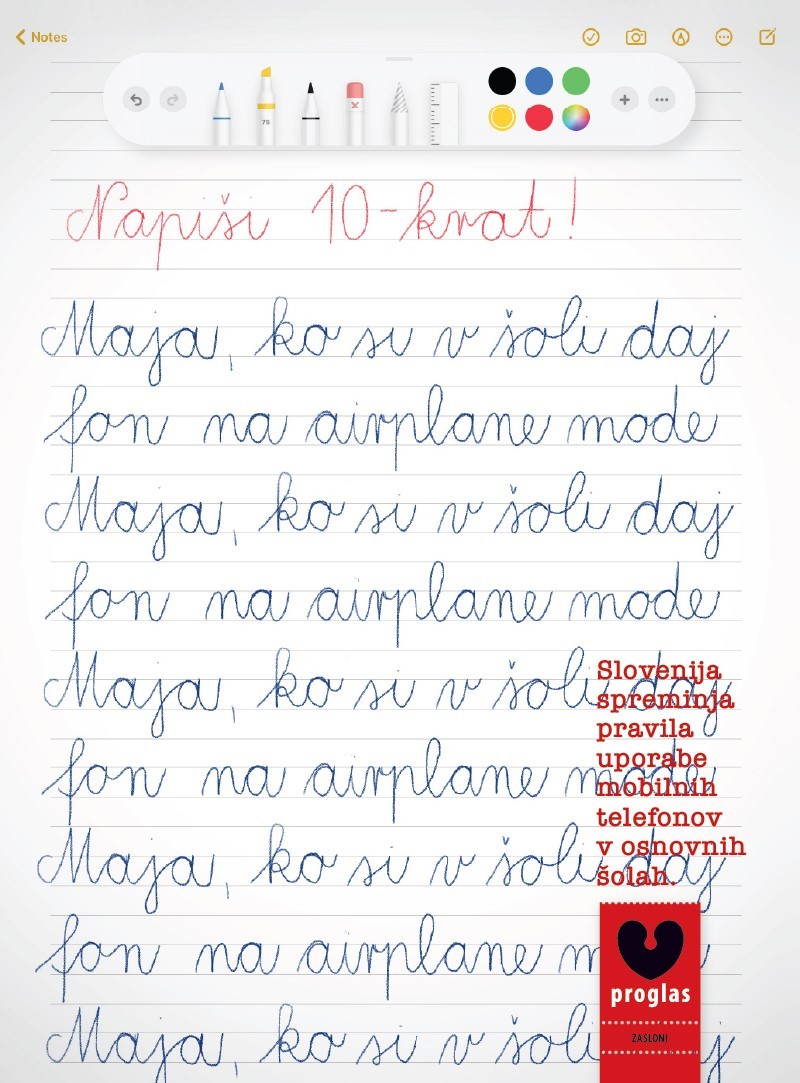 Notes
75
Napiši 10-krat!
Maja, ko si v šoli daj
fon na airplane mode
Maja, ko si v šoli daj
fon na airplane mode
Maja, ko si v šoli daj
fon na airplane mode
Maja, ko si v šoli daj
fon na airplane m
Maja, ko si v šoli j
Slovenija
spreminja
pravila
uporabe
mobilnih
telefonov
v osnovnih
šolah.
proglas
ZASLONI